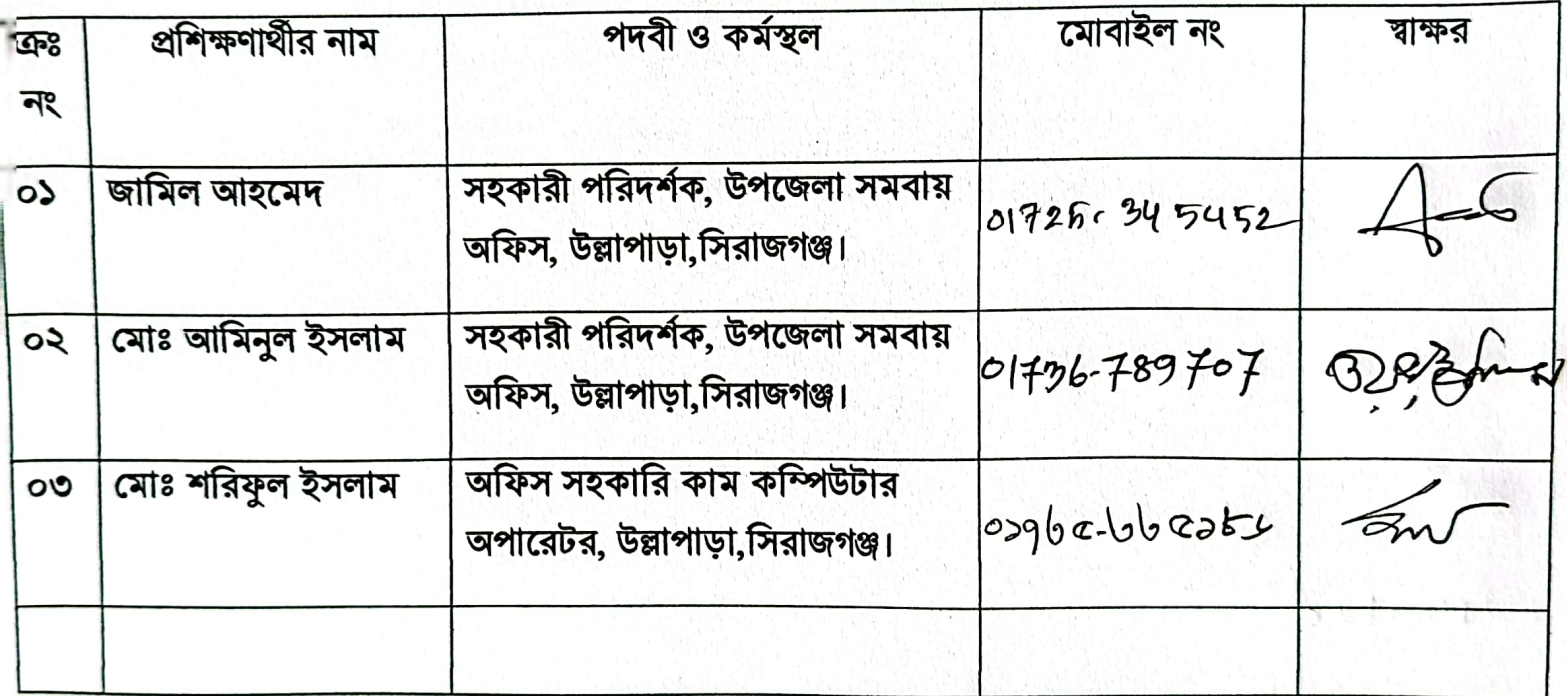 ক্রঃ নং প্রশিক্ষণার্থীর নাম পদবী ও কর্মস্থল মোবাইল নং স্বাক্ষর
০১ জামিল আহমেদ সহকারী পরিদর্শক, উপজেলা সমবায়
অফিস, উল্লাপাড়া,সিরাজগঞ্জ।
০২ মোঃ আমিনুল ইসলাম সহকারী পরিদর্শক, উপজেলা সমবায়
অফিস, উল্লাপাড়া,সিরাজগঞ্জ। 01736-789707
০৩ মোঃ শরিফুল ইসলাম অফিস সহকারি কাম কম্পিউটার
অপারেটর, উল্লাপাড়া,সিরাজগঞ্জ।